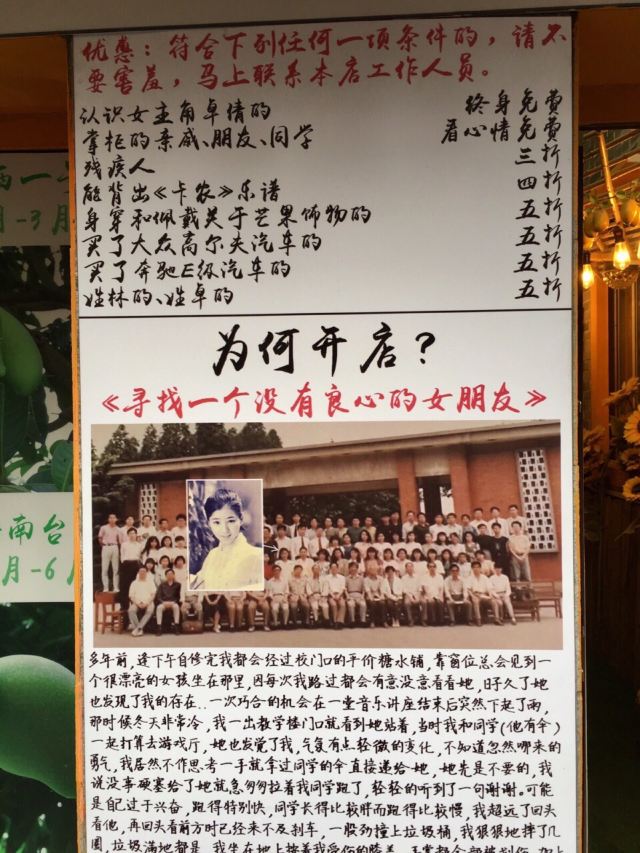 优惠：符合下列任何一项条件的，请不
要害羞，马上联系本店工作人员。
认识女主角卓倩的 终身免费
掌柜的亲戚、朋友、同学 看心情免费
残疾人 三折
能背出《卡农》乐谱 四折
身穿和佩戴关于芒果饰物的 五折
买了大众高尔夫汽车的 五折
买了奔驰E级汽车的 五折
姓林的、姓卓的 五折
为何开店？
《寻找一个没有良心的女朋友》
多年前，逢下午自修完我都会经过校门口的平价糖水铺，靠窗位总会见到一
个很漂亮的女孩坐在那里，因每次我路过都会有意没意看看她，日子久了她
也发现了我的存在..一次巧合的机会在一堂音乐讲座结束后突然下起了雨，
那时候冬天非常冷，我一出教学楼门口就看到她站着，当时我和同学(他有伞)
一起打算去游戏厅，她也发觉了我，气氛有点轻微的变化，不知道忽然哪来的
勇气，我居然不作思考一手就拿过同学的伞直接递给她，她先是不要的，我
说没事硬塞给了她就急匆匆拉着我同学跑了，轻轻的听到了一句谢谢。可能
是自己过于兴奋，跑得特别快，同学长得比较胖而跑得比较慢，我超远了回头
看他，再回头看前方时已经来不及刹车，一股劲撞上垃圾桶，我狠狠地摔了几
圈，垃圾满地都是
南台
月-6
月-3月